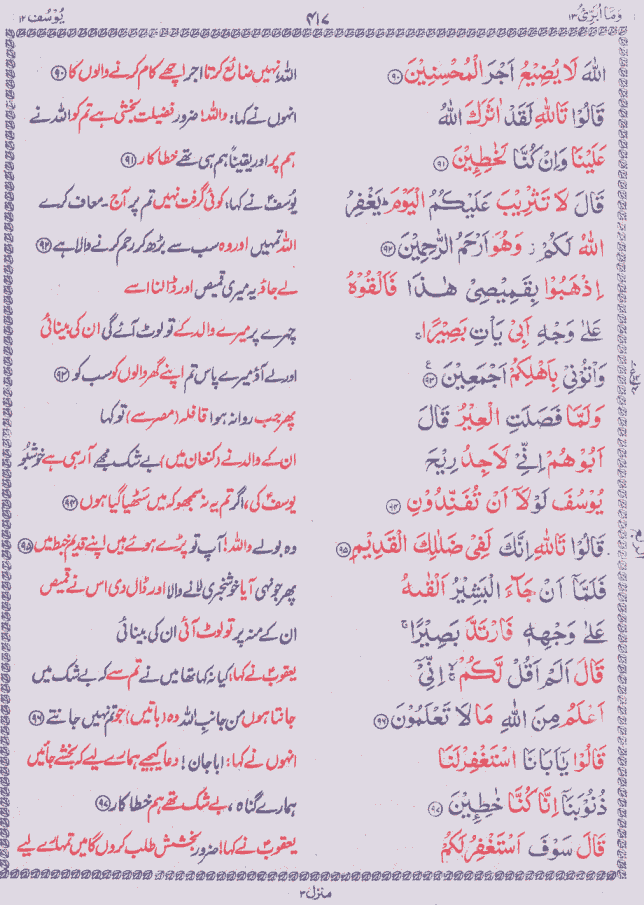 وَمَآ اُبَرِّئُ ١٣
٤١٧
يُوْسُف ١٢
اللّٰهَ لَا يُضِيْعُ اَجْرَ الْمُحْسِنِيْنَ ۹۰
اللہ نہیں ضائع کرتا اجر اچھے کام کرنے والوں کا ۹۰
قَالُوْا تَاللّٰهِ لَقَدْ اٰثَرَكَ اللّٰهُ
انہوں نے کہا: واللہ! ضرور فضیلت بخشی ہے تم کو اللہ نے
عَلَيْنَا وَاِنْ كُنَّا لَخٰطِـِٕيْنَ ۹۱
ہم پر اور یقیناً ہم ہی تھے خطا کار ۹۱
قَالَ لَا تَثْرِيْبَ عَلَيْكُمُ الْيَوْمَ ؕ يَغْفِرُ
یُوسُفؑ نے کہا، کوئی گرفت نہیں تم پر آج - معاف کرے
اللّٰهُ لَكُمْ ؗ وَهُوَ اَرْحَمُ الرّٰحِمِيْنَ ۹۲
اللہ تمہیں اور وہ سب سے بڑھ کر رحم کرنے والا ہے ۹۲
اِذْهَبُوْا بِقَمِيْصِيْ هٰذَا فَاَلْقُوْهُ
لے جاؤ یہ میری قمیص اور ڈالنا اسے
عَلٰى وَجْهِ اَبِيْ يَاْتِ بَصِيْرًا ۚ
چہرے پر میرے والد کے تو لوٹ آئے گی ان کی بینائی
وَاْتُوْنِيْ بِاَهْلِكُمْ اَجْمَعِيْنَ ۹۳
اور لے آؤ میرے پاس تم اپنے گھر والوں کو سب کو ۹۳
وَلَمَّا فَصَلَتِ الْعِيْرُ قَالَ
پھر جب روانہ ہوا قافلہ (مصر سے) تو کہا
اَبُوْهُمْ اِنِّيْ لَاَجِدُ رِيْحَ
ان کے والد نے (کنعان میں) بے شک مجھے آ رہی ہے خوشبُو
يُوْسُفَ لَوْلَآ اَنْ تُفَنِّدُوْنِ ۹۴
یوسفؑ کی، اگر تم یہ نہ سمجھو کہ میں سٹھیا گیا ہوں ۹۴
قَالُوْا تَاللّٰهِ اِنَّكَ لَفِيْ ضَلٰلِكَ الْقَدِيْمِ ۹۵
وہ بولے واللہ! آپ تو پڑے ہوئے ہیں اپنے قدیم خبط میں ۹۵
فَلَمَّآ اَنْ جَآءَ الْبَشِيْرُ اَلْقٰىهُ
پھر جونہی آیا خوشخبری لانے والا اور ڈال دی اس نے قمیص
عَلٰى وَجْهِهٖ فَارْتَدَّ بَصِيْرًا ۚ
ان کے منہ پر تو لوٹ آئی ان کی بینائی
قَالَ اَلَمْ اَقُلْ لَّكُمْ ۙۚ اِنِّيْٓ
یعقوبؑ نے کہا، کیا نہ کہا تھا میں نے تم سے کہ بے شک میں
اَعْلَمُ مِنَ اللّٰهِ مَا لَا تَعْلَمُوْنَ ۹۶
جانتا ہوں من جانب اللہ وہ (باتیں) جو تم نہیں جانتے ۹۶
قَالُوْا يٰٓاَبَانَا اسْتَغْفِرْ لَنَا
انہوں نے کہا: ابا جان! دعا کیجیے ہمارے لیے کہ بخشے جائیں
ذُنُوْبَنَآ اِنَّا كُنَّا خٰطِـِٕيْنَ ۹۷
ہمارے گناہ، بے شک تھے ہم خطا کار ۹۷
قَالَ سَوْفَ اَسْتَغْفِرُ لَكُمْ
یعقوبؑ نے کہا: ضرور بخشش طلب کروں گا میں تمہارے لیے
منزل ۳